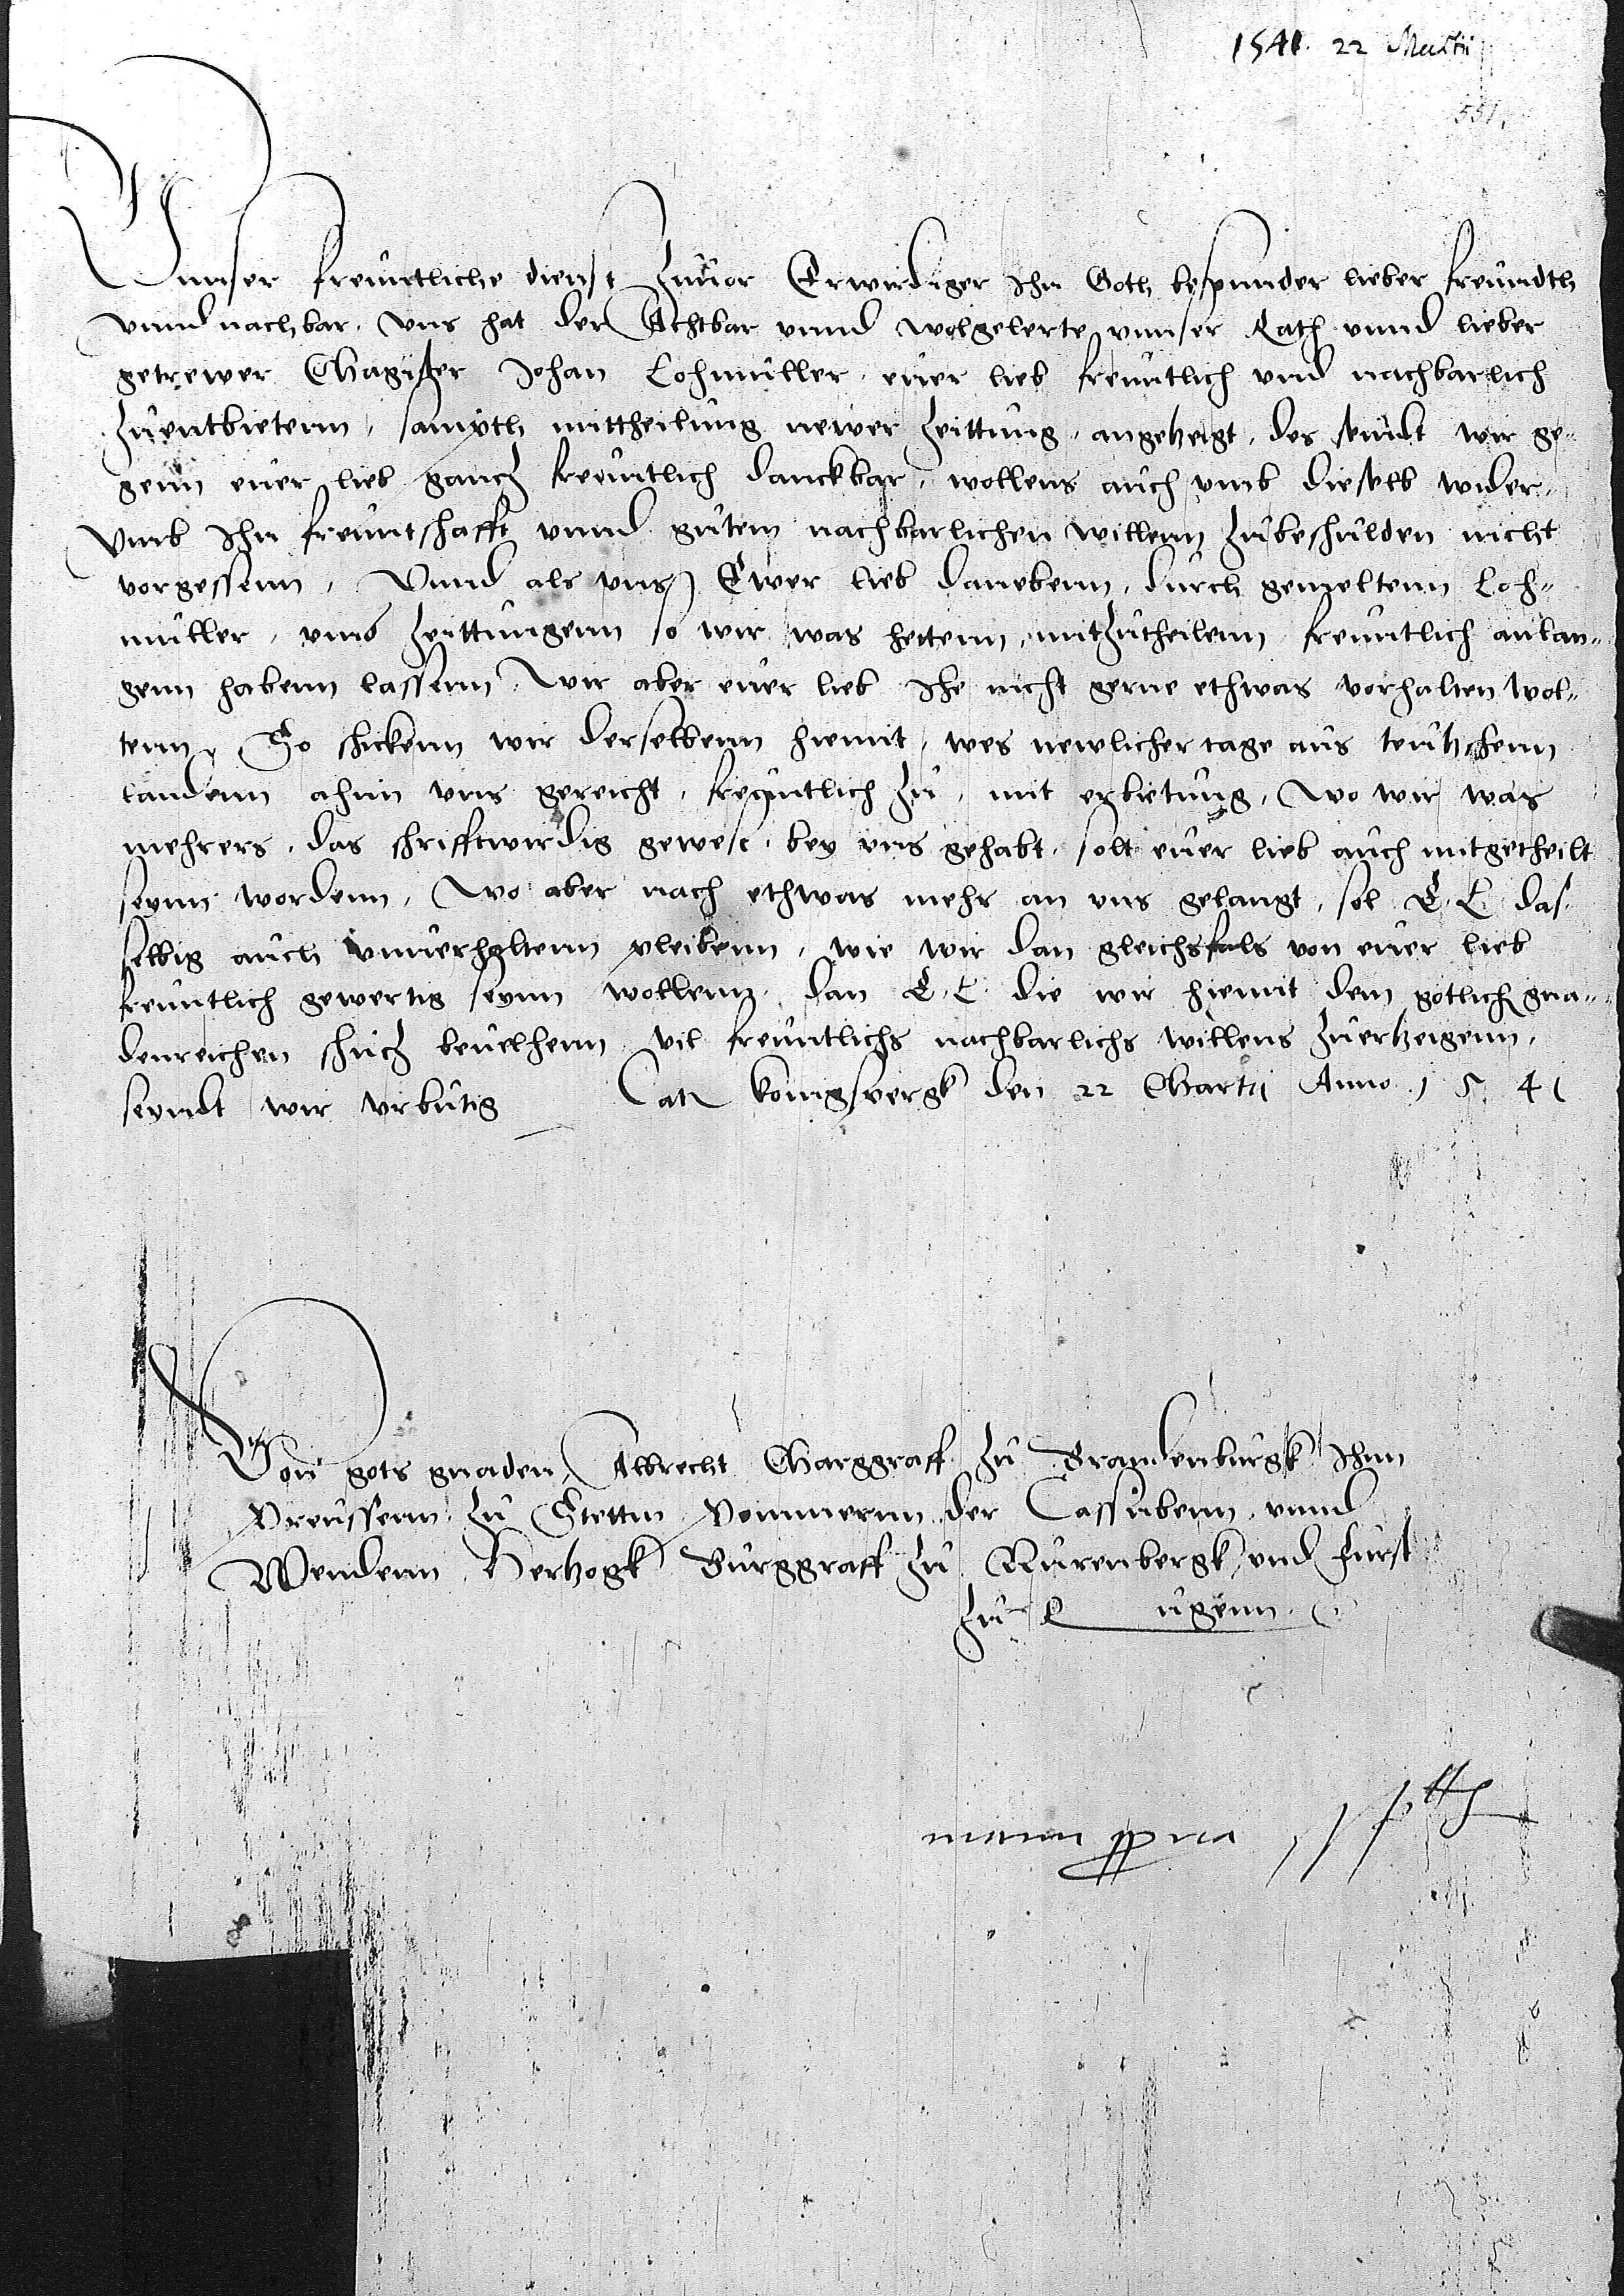 1541. 22 Martii
551.
Vnnser freuntliche dienst zuuor Erwirdiger Jhn Goth besunnder lieber freundth
vnnd nachbar. Vns hat der Achtbar vnnd wolgelerte vnnser Rath vnnd lieber
getrewer Magister Johan Lohmuller, euer lieb freuntlich vnd nachbarlich
zuentbietenn, sampth mittheilung newer zeittung, angezeigt, des seindt wir ge„
genn euer lieb gancz freuntlich danckbar, wollens auch vmb dieselb wider„
vmb Jhn freuntschafft vnnd gutem nachbarlichen willenn zubeschulden nicht
vorgessenn, Vnnd als vnns Ewer lieb danebenn, durch gemeltenn Loh„
muller, vmb zeittungenn so wir was hettenn, mitzutheilenn freuntlich anlan„
genn habenn lassenn, Wir aber euer lieb Jhe nicht gerne ethwas vorhalten wol„
tenn, So schickenn wir derselbenn hiemit, wes newlicher tage aus teutzschenn
landenn ahnn vns gereicht, freuntlich zu, mit erbietung, Wo wir was
mehrers, das schrifftwirdig gewest, bey vns gehabt, solt euer lieb auch mitgetheilt
seynn wordenn, Wo aber nach ethwas mehr an vns gelangt, sol E. L. das„
selbig auch vnuerhaltenn pleibenn, wie wir dan gleichsfals von euer lieb
freuntlich gewertig seynn wollenn, dan E. L. die wir hiemit dem gotlich gna„
denreichen schucz beuelhenn vil freuntlichs nachbarlichs willens zuerzeigenn,
seyndt wir vrbutig Dat konigspergk den 22 Martii Anno 1541
Von gots gnaden Albrecht Marggraff zu Brandenburgk Jhnn
Preussenn, zu Stettin Pommernn der Cassubenn, vnnd
Wendenn Hertzogk Burggraff zu Nurenbergk, vnd furst
zu Rugenn.
manu ppria sst